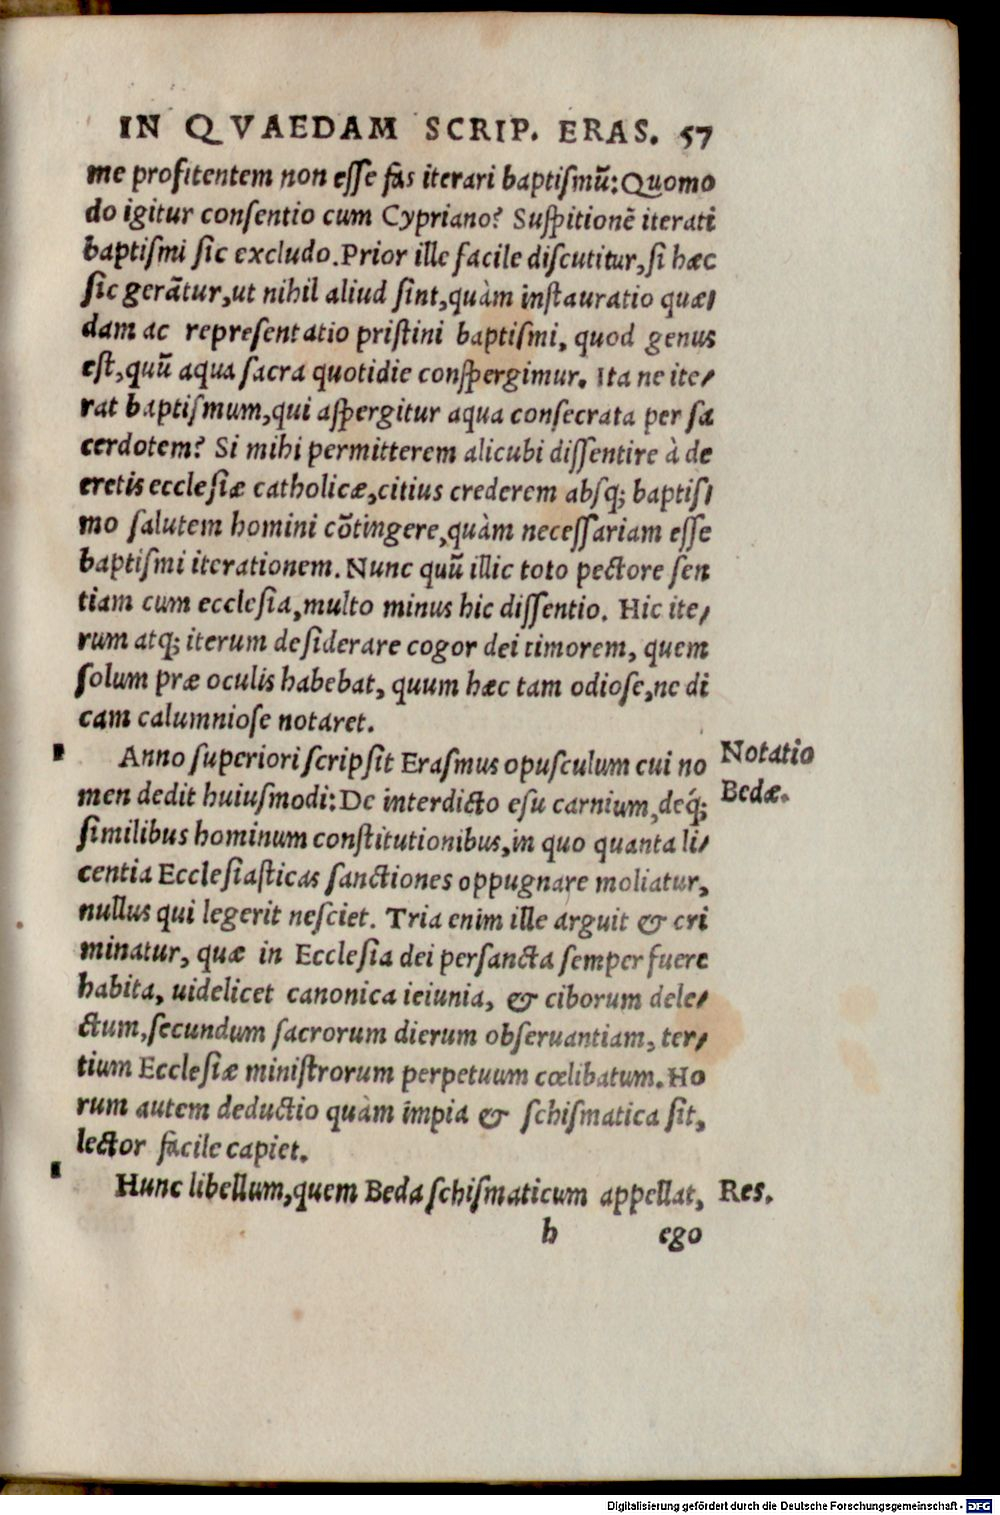 IN QVAEDAM SCRIP. ERAS. 57
me profitentem non esse fas iterari baptismũ: Quomo
do igitur consentio cum Cypriano? Suspitionẽ iterati
baptismi sic excludo. Prior ille facile discutitur, si hæc
sic gerãtur, ut nihil aliud sint, quàm instauratio quæ-
dam ac repræsentatio pristini baptismi, quod genus
est, quũ aqua sacra quotidie conspergimur. Ita ne ite-
rat baptismum, qui aspergitur aqua consecrata per sa
cerdotem? Si mihi permitterem alicubi dissentire à de
cretis ecclesiæ catholicæ, citius crederem absq; baptis-
mo salutem homini cõtingere, quàm necessariam esse
baptismi iterationem. Nunc quũ illic toto pectore sen
tiam cum ecclesia, multo minus hic dissentio. Hic ite-
rum atq; iterum desiderare cogor dei timorem, quem
solum præ oculis habebat, quum hæc tam odiose, ne di
cam calumniose notaret.
Anno superiori scripsit Erasmus opusculum cui no
men dedit huiusmodi: De interdicto esu carnium, deq́;
similibus hominum constitutionibus, in quo quanta li-
centia Ecclesiasticas sanctiones oppugnare moliatur,
nullus qui legerit nesciet. Tria enim ille arguit & cri
minatur, quæ in Ecclesia dei persancta semper fuere
habita, uidelicet canonica ieiunia, & ciborum dele-
ctum, secundum sacrorum dierum obseruantiam, ter-
tium Ecclesiæ ministrorum perpetuum cœlibatum. Ho
rum autem deductio quàm impia & schismatica sit,
lector facile capiet.
Notatio
Bedæ.
Hunc libellum, quem Beda schismaticum appellat,
Res.
h ego
Digitalisierung gefördert durch die Deutsche Forschungsgemeinschaft - DFG